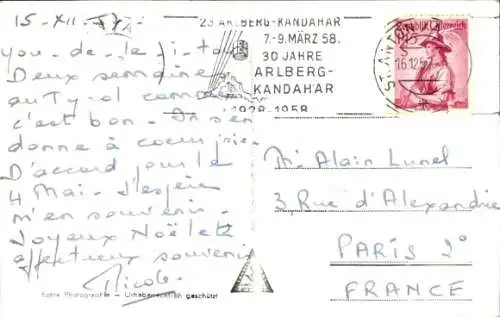 15-XII-57
you-de-le-i-tou
Deux semaines
au Tyrol comme
c'est bon - On s'en
donne à coeur joie
D'accord pour le
4 Mai - J'espère
m'en souvenir -
Joyeux Noël et
affectueux souvenir
Nicole
Echte Photographie - Urheberrechtlich geschützt
23. ARLBERG-KANDAHAR
7.-9. MÄRZ 58.
30 JAHRE
ARLBERG-
KANDAHAR
1928-1958
Republik Österreich
ST. ANTON
16.12.57
Mr. Alain Lunel
3 Rue d'Alexandrie
PARIS 2°
FRANCE